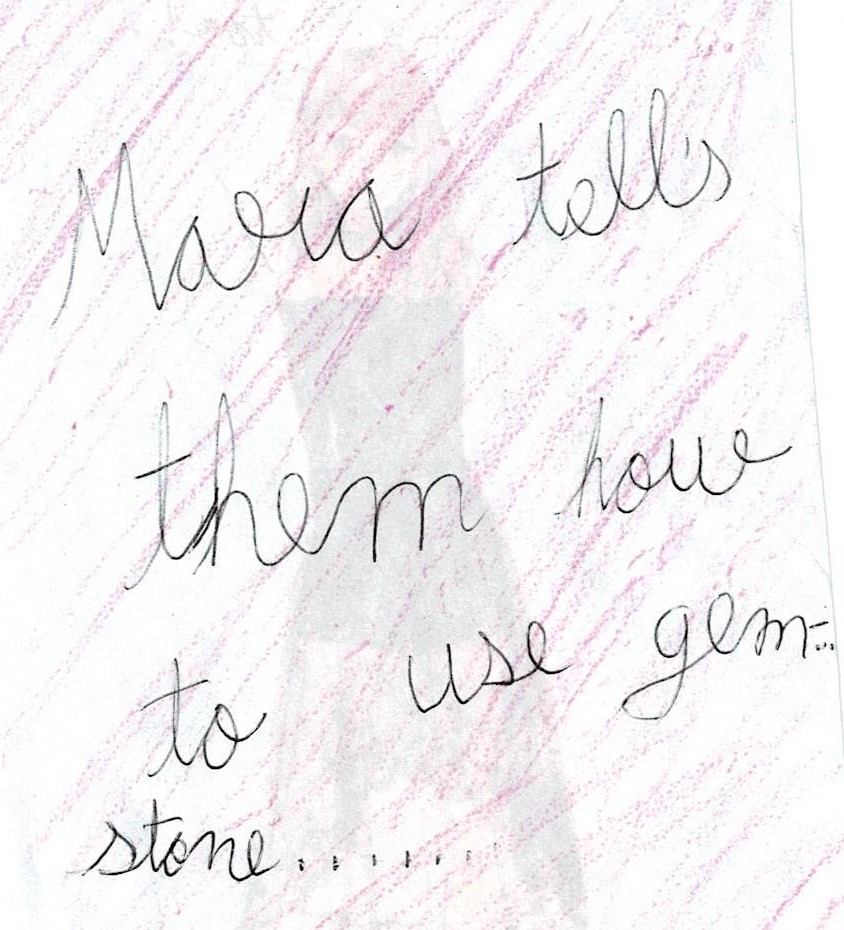 Mara tells
them how
to use gem-..
stone........